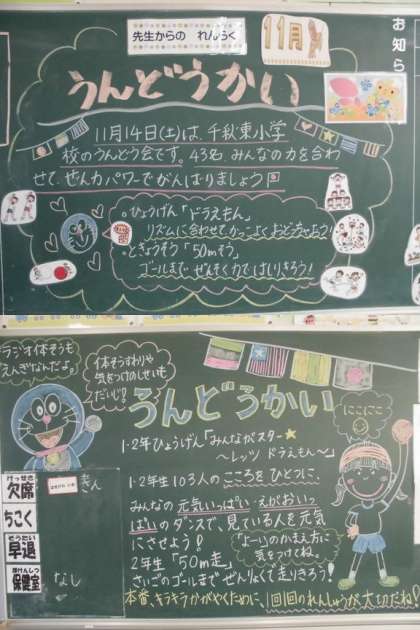 お知ら
先生からの れんらく
11月
うんどうかい
11月14日(土)は、千秋東小学
校のうんどう会です。43名、みんなの力を合わ
せて、ぜん力パワーでがんばりましょう!
○ひょうげん「ドラえもん」
リズムに合わせてかっこよくおどっちゃおう!
○ときょうそう「50mそう」
ゴールまで、ぜんそく力ではしりきろう!
ラジオ体そうも
えんぎなんだよ。
体そうずわりや
気をつけのしせいも
だいじ!
うんどうかい
にこにこ
1・2年ひょうげん「みんながスター★
〜レッツ ドラえもん〜」
1・2年生103人の こころを ひとつに、
みんなの 元気いっぱい・えがおいっ
ぱいのダンスで、見ている人を元気
にさせよう!
「よーい」のかまえ方に
気をつけてね。
2年生「50m走」
さいごのゴールまで ぜんりょくで走りきろう!
本番、キラキラかがやくために、1回1回のれんしゅうが大切だね!
けっせき
欠席
さん
ちこく
そうたい
早退
ほけんしつ
保健室
なし